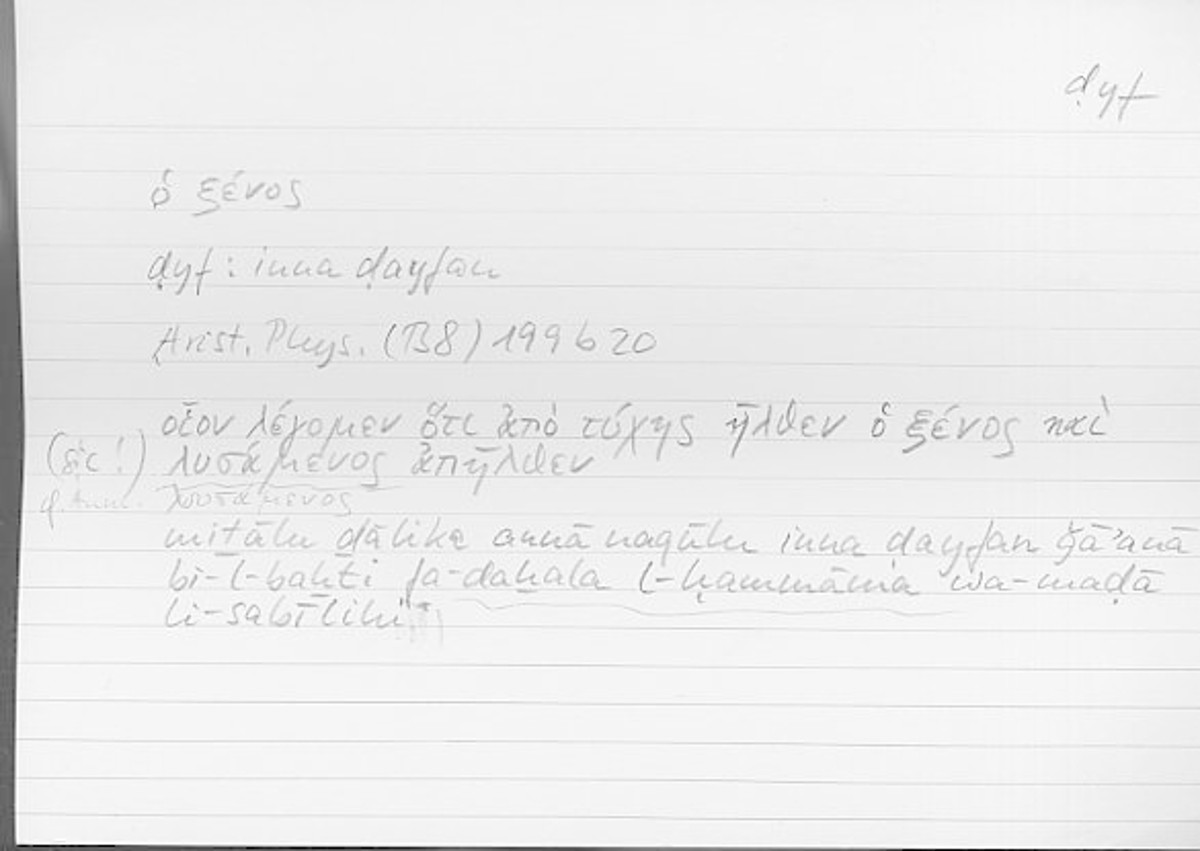 ḍyf
ὁ ξένος
ḍyf : inna ḍayfan
Arist. Phys. (B8) 199 b 20
οἷον λέγομεν ὅτι ἀπὸ τύχης ἦλθεν ὁ ξένος καὶ
(sic!) λυσάμενος ἀπῆλθεν
λουσάμενος
miṯālu ḏālika annā naqūlu inna ḍayfan ǧā'anā
bi-l-baḫti fa-daḫala l-ḥammāma wa-maḍā
li-sabīlihi